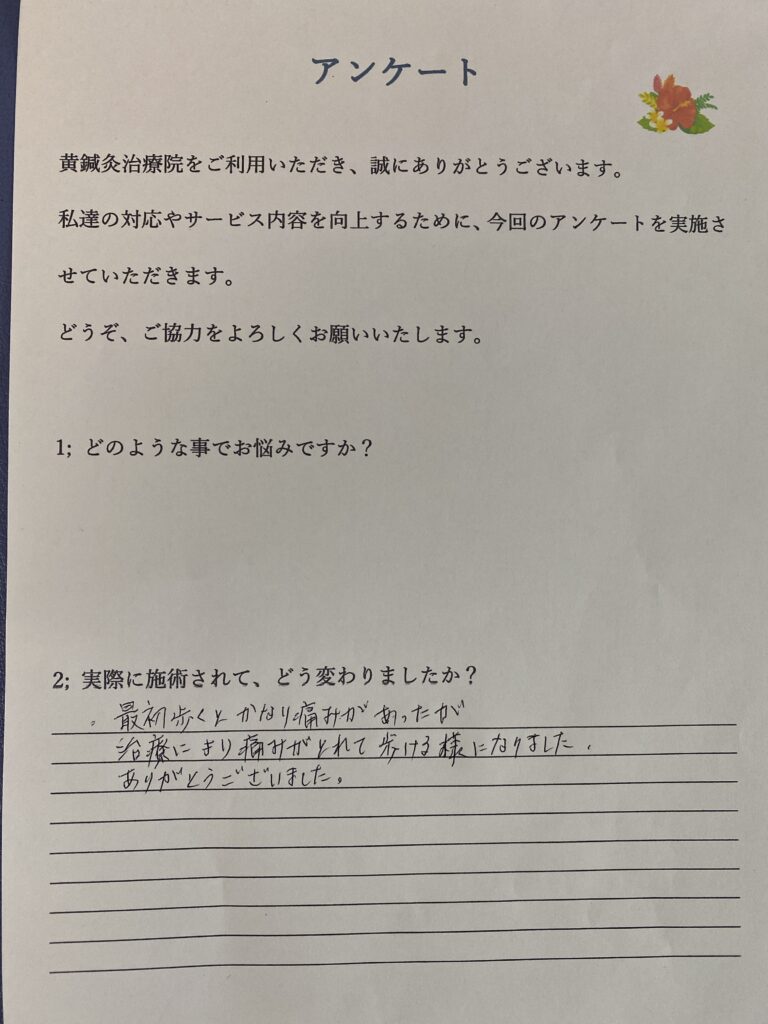 アンケート
黄鍼灸治療院をご利用いただき、誠にありがとうございます。
私達の対応やサービス内容を向上するために、今回のアンケートを実施さ
せていただきます。
どうぞ、ご協力をよろしくお願いいたします。
1; どのような事でお悩みですか？
2; 実際に施術されて、どう変わりましたか？
。最初歩くとかなり痛みがあったが
治療により痛みがとれて歩ける様になりました.
ありがとうございました。